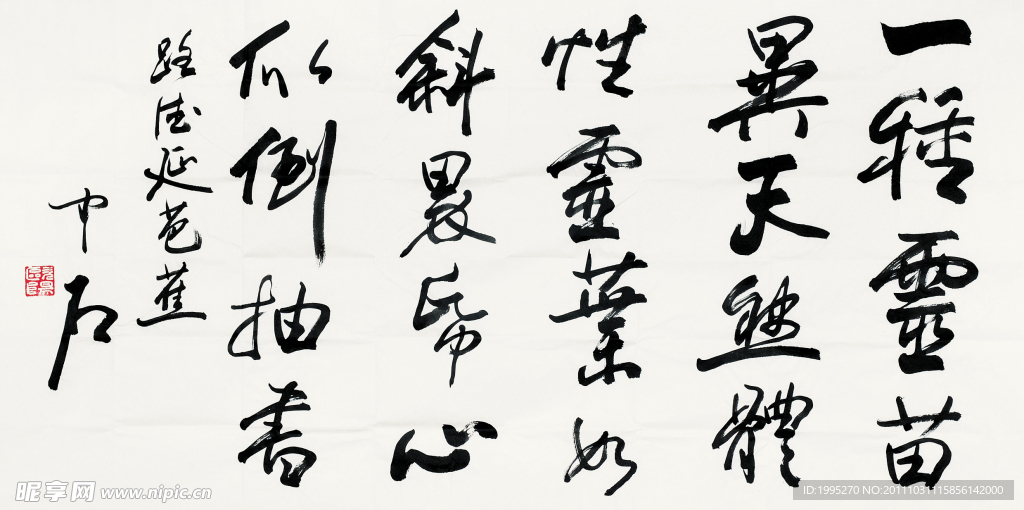 一種靈苗
異天然體
性靈葉如
斜界帋心
似倒抽書
路德延芭蕉
中石
昵享网 www.nipic.cn
ID:1995270 NO:20111031115856142000